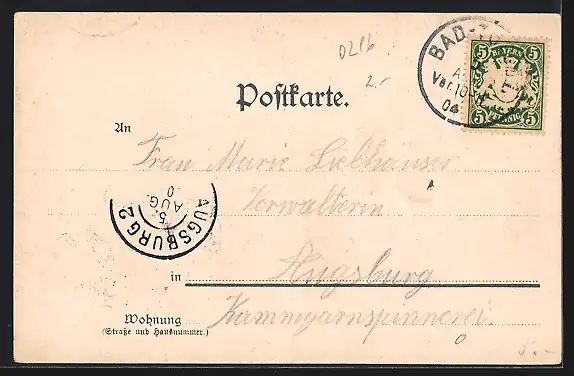 0216
2.-
BAD-
5 BAYERN 5
Vor. 10-
04
5 PFENNIG 5
Postkarte.
An
Frau Marie Liebhäuser
Verwalterin
in Augsburg
Kammgarnspinnerei.
AUGSBURG 2
5.
AUG.
0
Wohnung
(Straße und Hausnummer.)
8.-